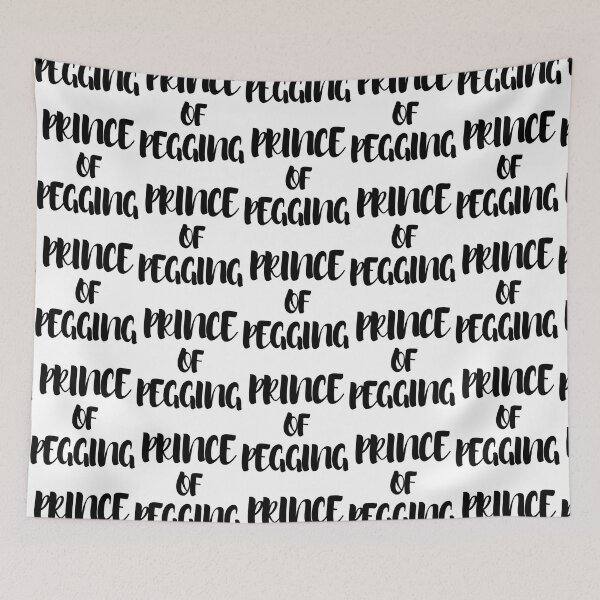 PEGGING PRINCE PEGGING PRINCE PEGGING
OF OF
PRINCE PEGGING PRINCE PEGGING PRINCE
OF OF OF
PEGGING PRINCE PEGGING PRINCE PEGGING
OF OF
PRINCE PEGGING PRINCE PEGGING PRINCE
OF OF OF
PEGGING PRINCE PEGGING PRINCE PEGGING
OF OF
PRINCE PEGGING PRINCE PEGGING PRINCE
OF OF OF
PEGGING PRINCE PEGGING PRINCE PEGGING
OF OF
PRINCE PEGGING PRINCE PEGGING PRINCE